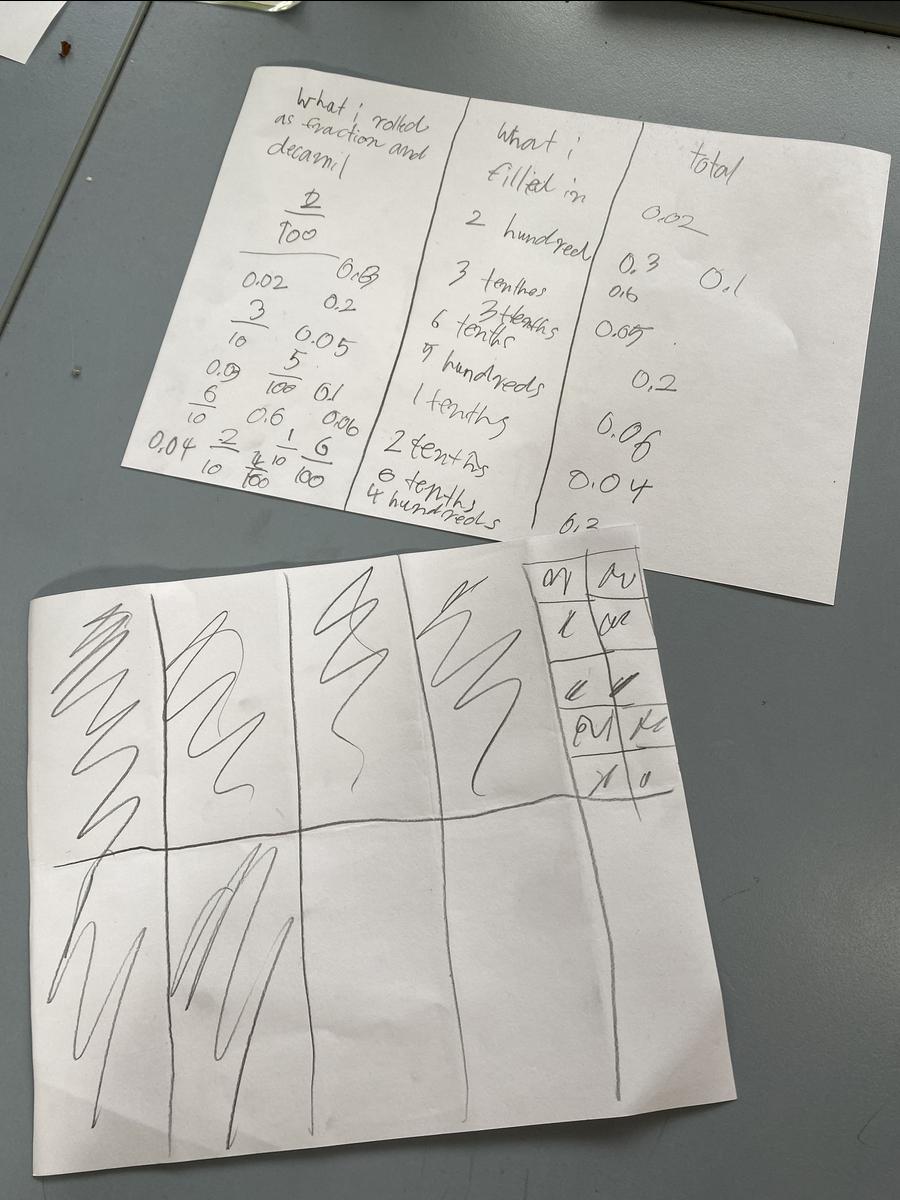 What i rolled
as fraction and
decamil
2
100
0.02
0.2
3
10
0.05
0.09
5
100
0.1
6
10
0.6
0.06
0.04
2
10
4
100
1
10
6
100
What i
filled in
2 hundred
3 tenthes
3 tenths
6 tenths
5 hundreds
1 tenths
2 tenths
6 tenths
4 hundreds
total
0.02
0.3
0.1
0.6
0.05
0.2
0.06
0.04
0.2